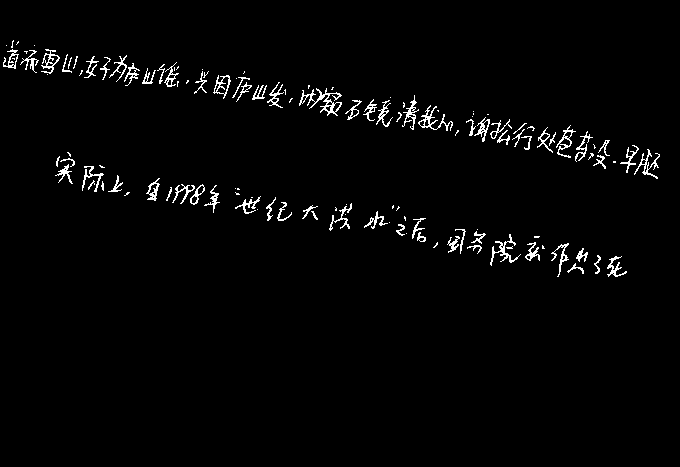 道夜雪山,好为庐山谣,兴因庐山发,闲窥石镜清我心,谢公行处苍苔没.早服
实际上,自1998年“世纪大洪水”之后,国务院就作出了